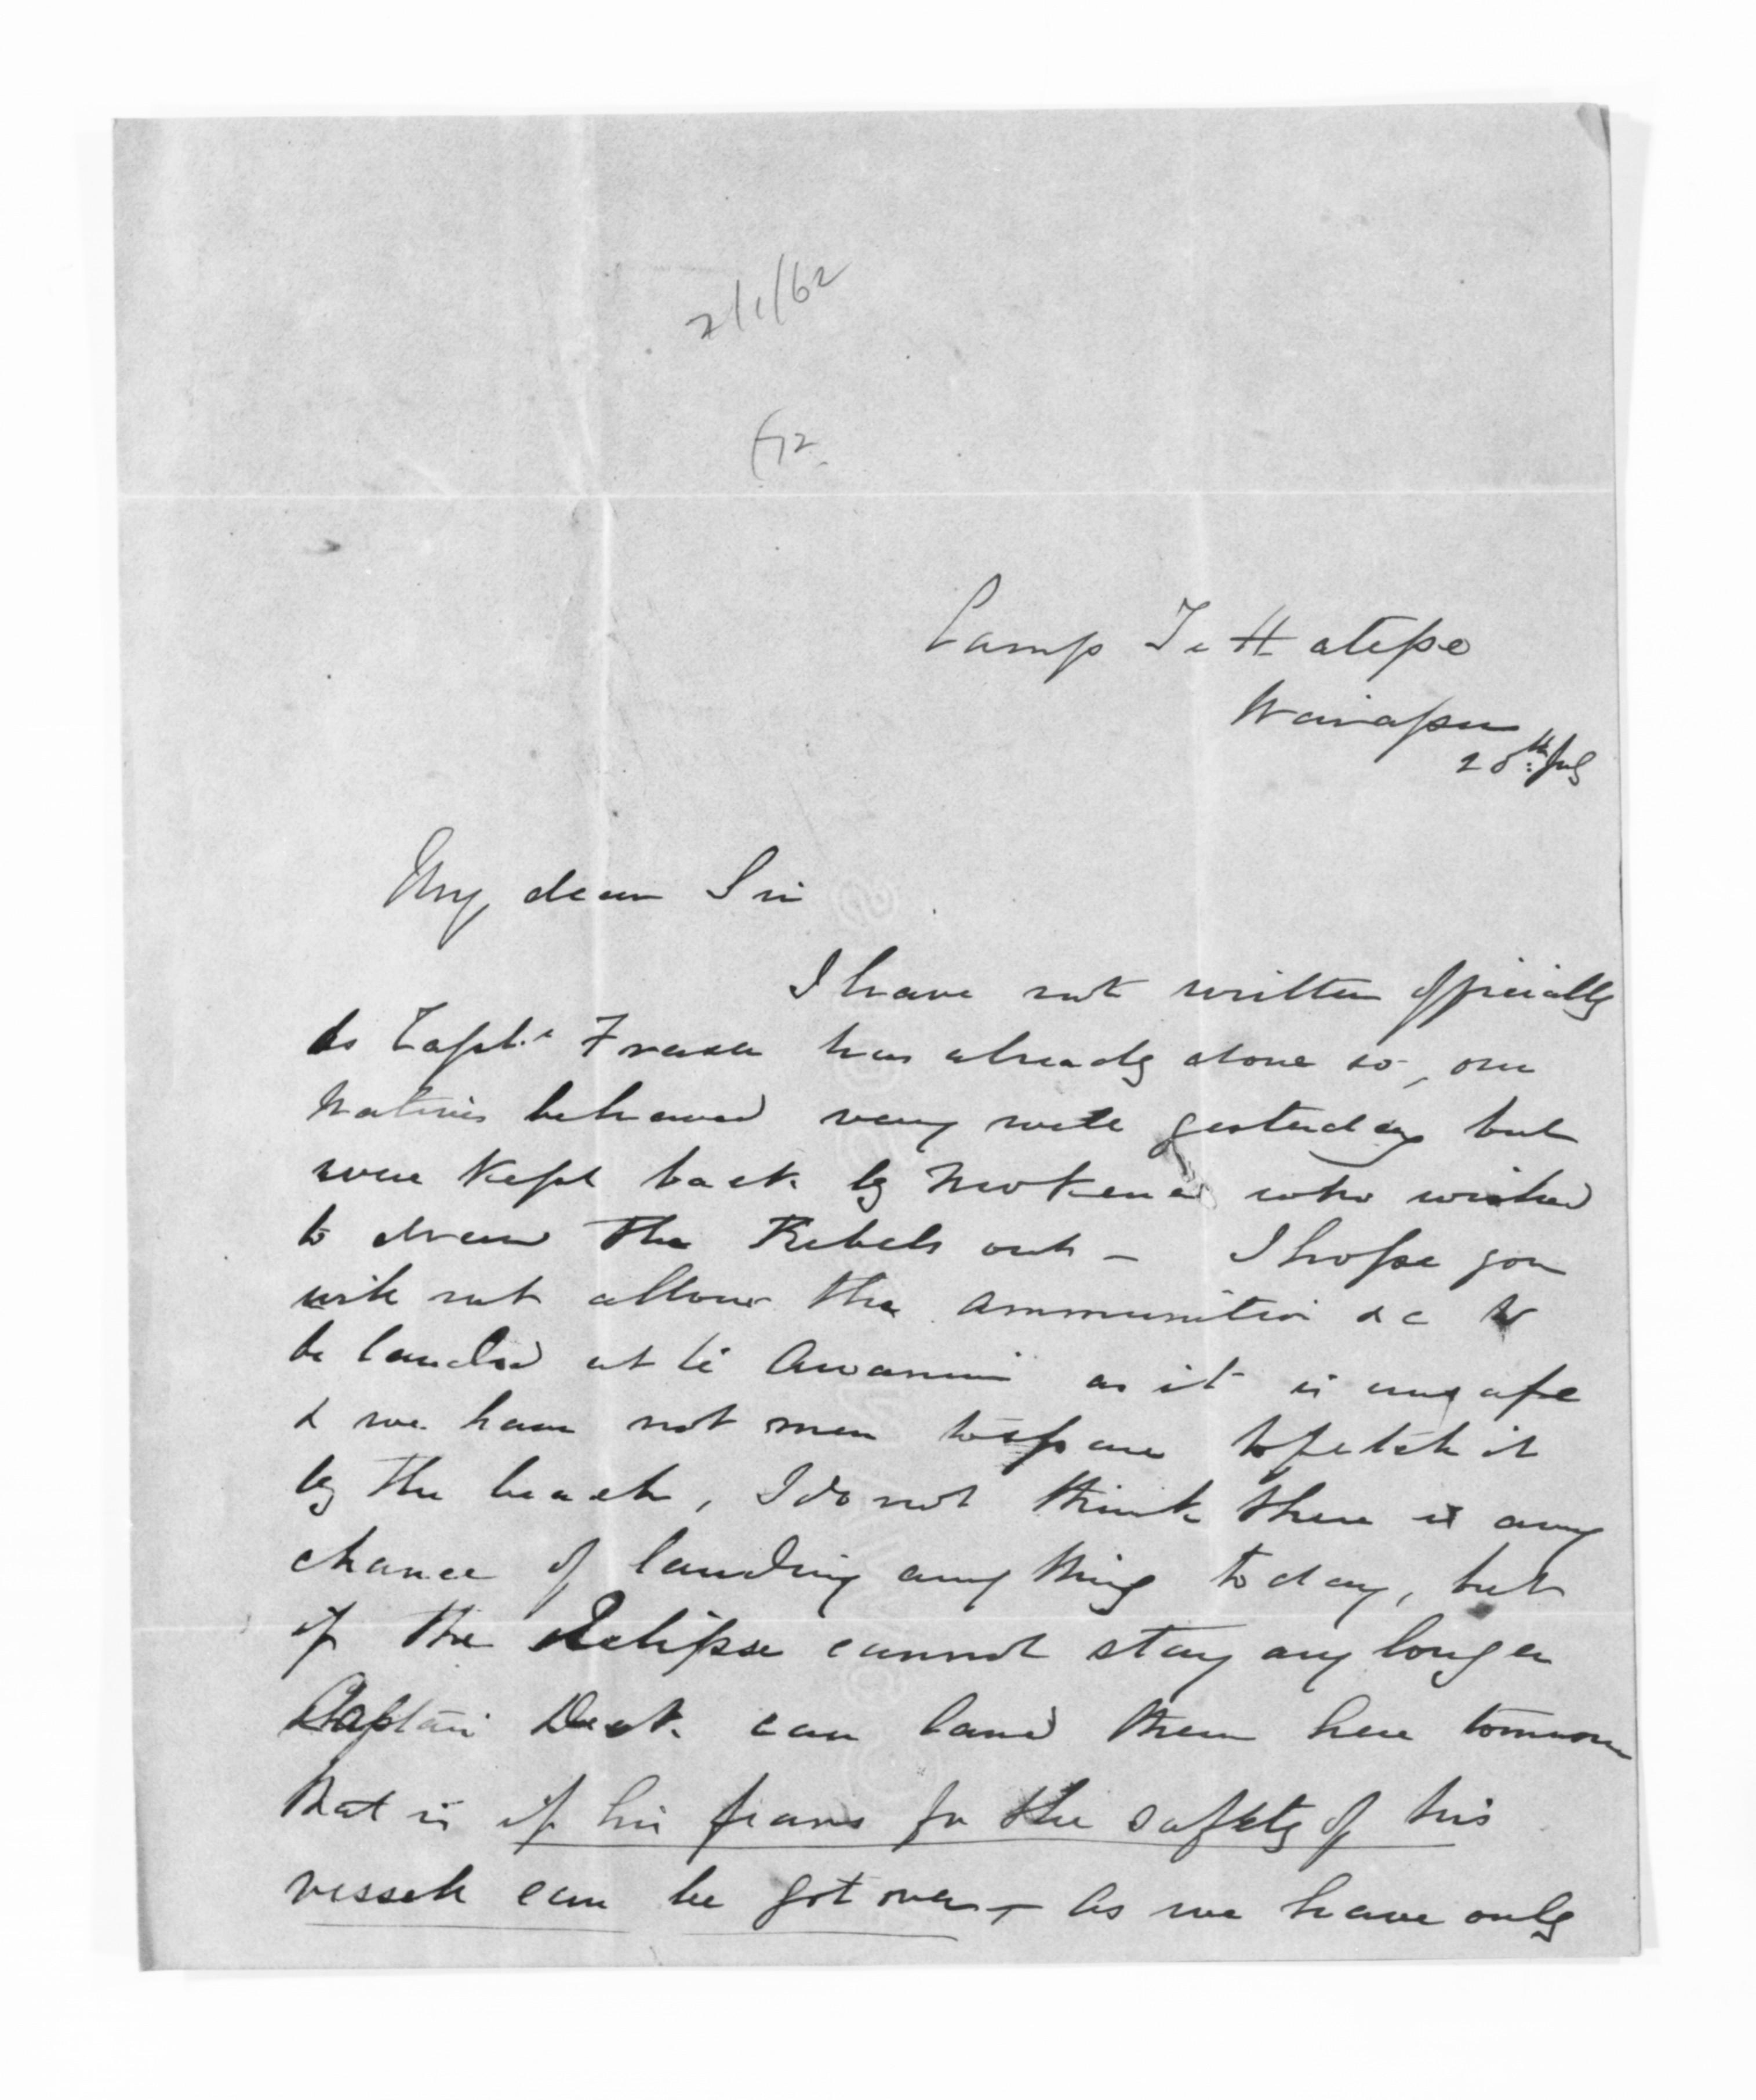 2/1/62
(72.
Camp Te Hatepe
Waiapu
My dear Sir
I have not written officially
as Capt. Fraser has already done so, our
Natives behaved very well yesterday but
were kept back by Mokena who wished
to draw the Rebels out — I hope you
will not allow the ammunition &c to
be landed at te Awanui as it is unsafe
& we have not men to spare to fetch it
by the beach, I do not think there is any
chance of landing any thing today, but
if the Eclipse cannot stay any longer
Captain can land them here tomorrow
that is if his fears for the safety of his
vessel can be got over — as we have only